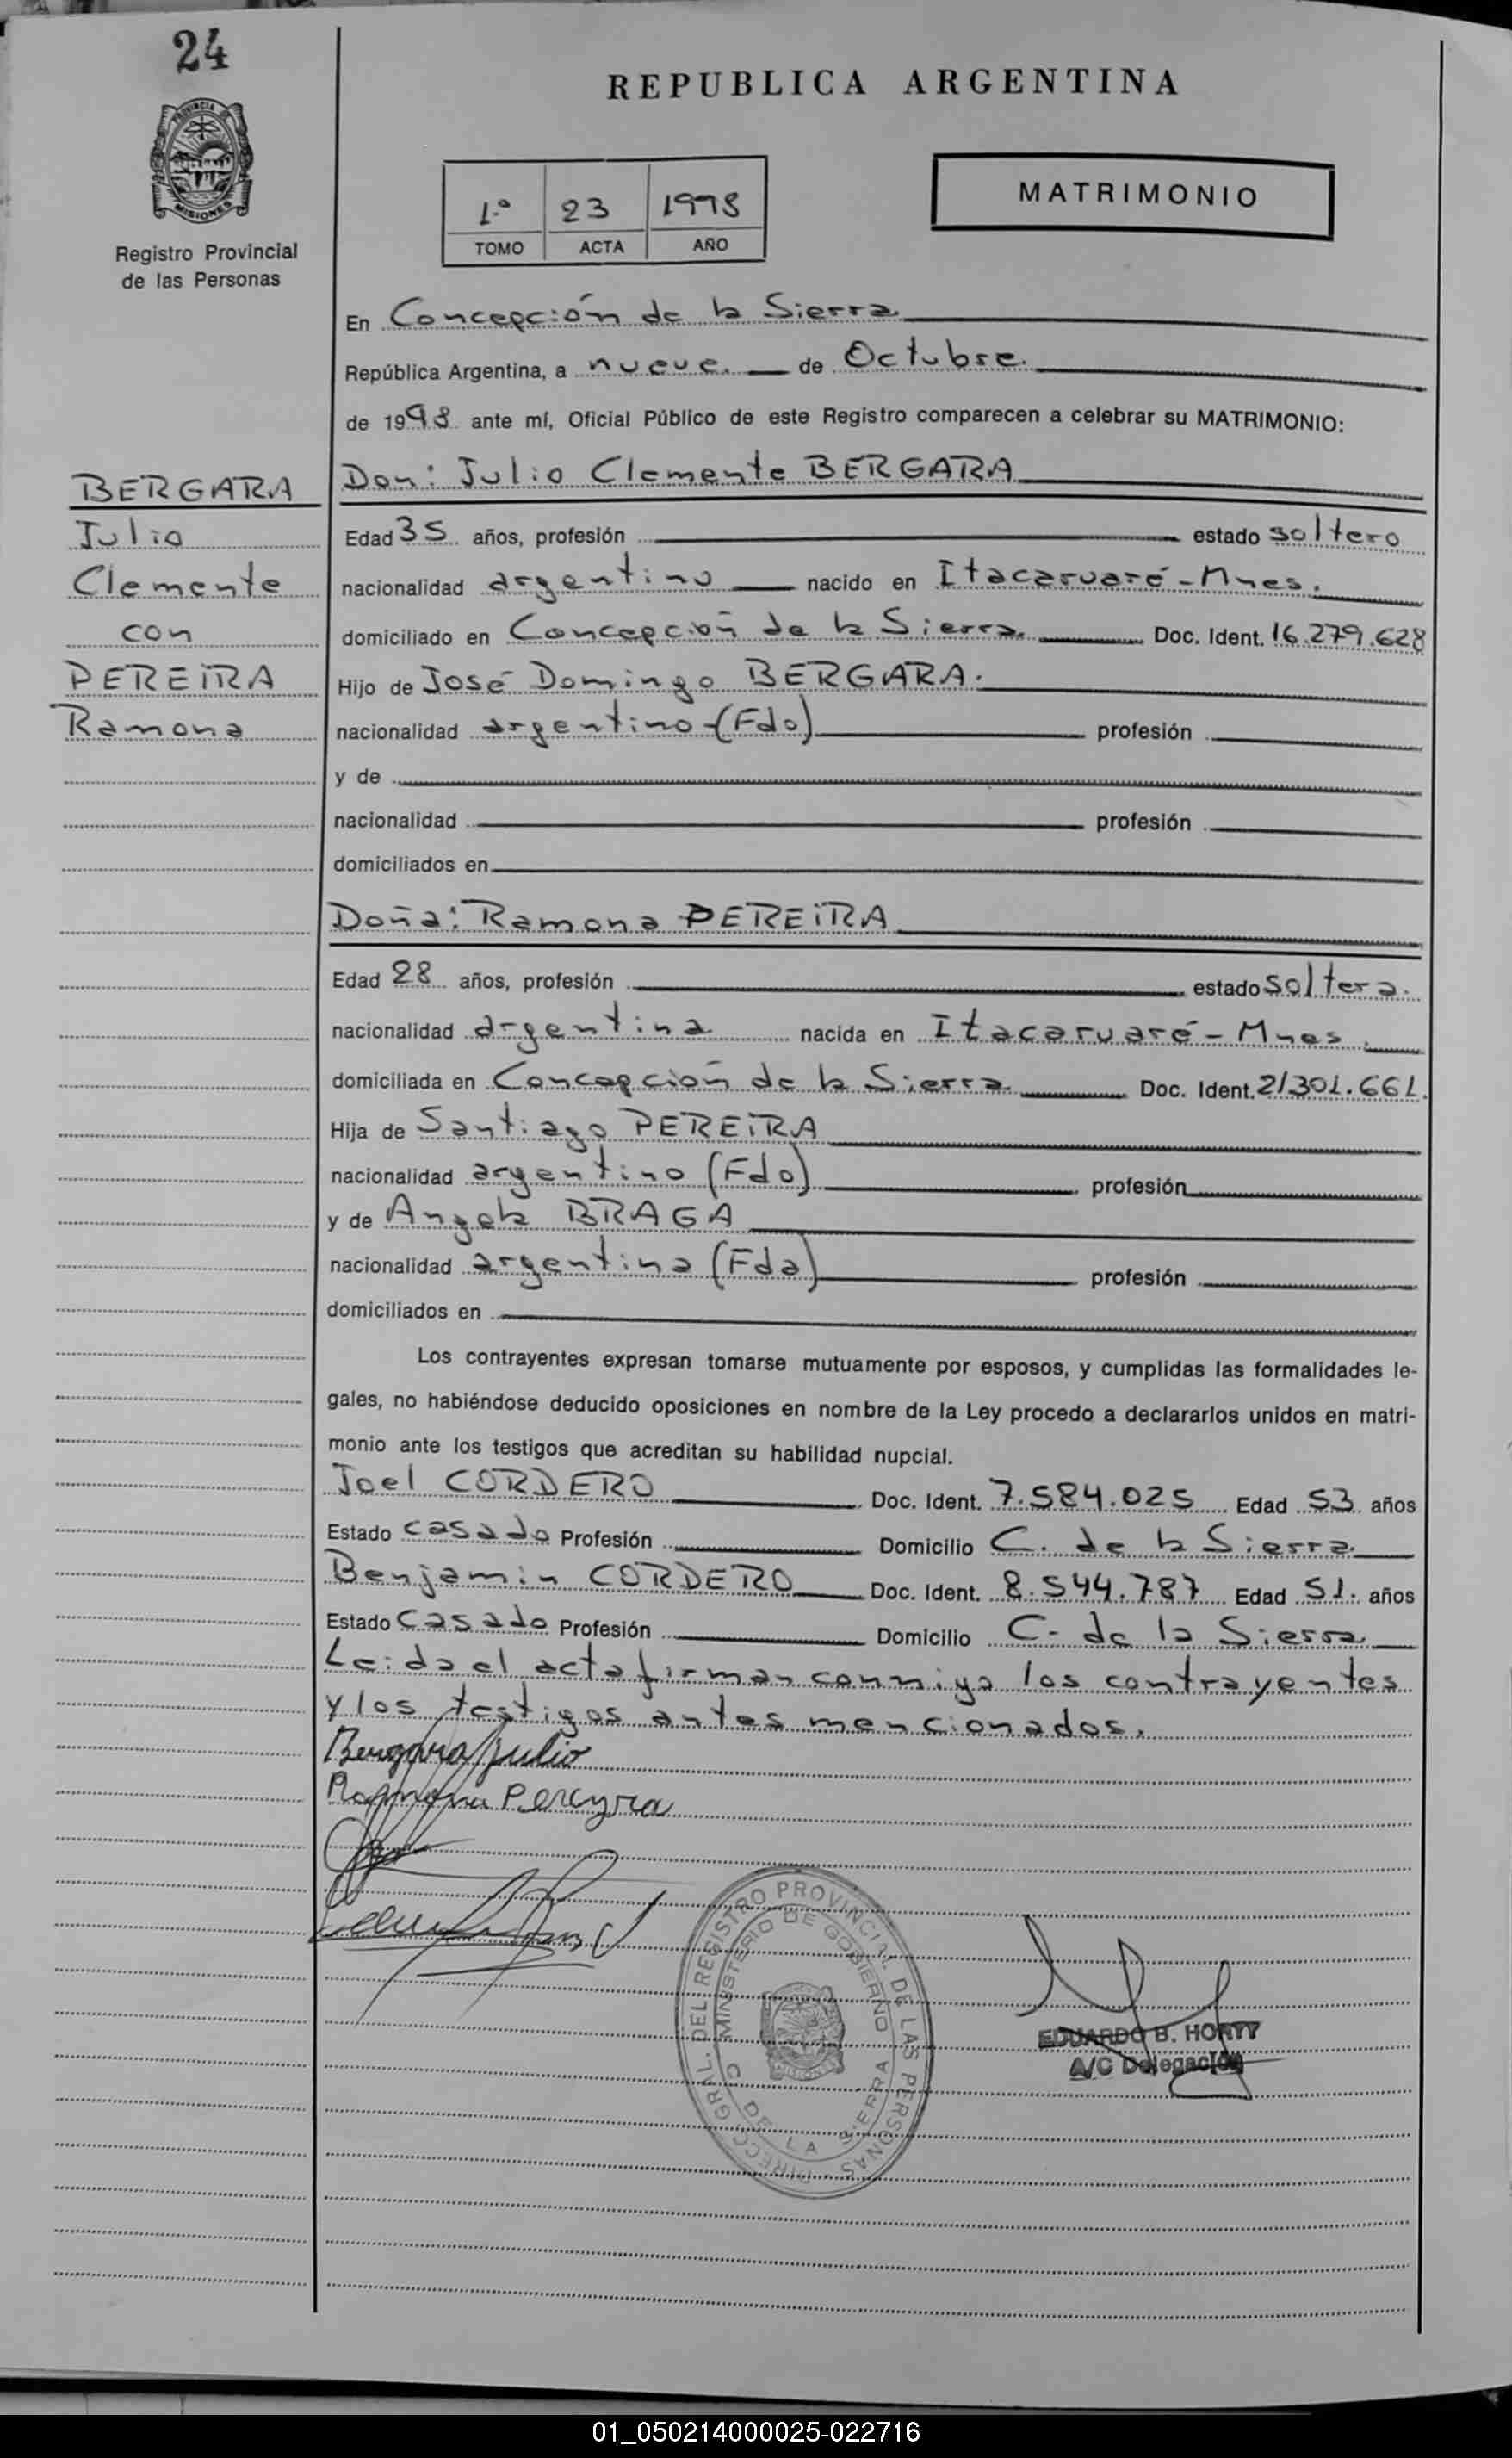 24
REPUBLICA ARGENTINA
PROVINCIA DE
MISIONES
Registro Provincial
de las Personas
1.º 23 1998
TOMO ACTA AÑO
MATRIMONIO
En Concepción de la Sierra
República Argentina, a nueve. de Octubre.
de 1998 ante mí, Oficial Público de este Registro comparecen a celebrar su MATRIMONIO:
BERGARA
Julio
Clemente
con
PEREIRA
Ramona
Don: Julio Clemente BERGARA
Edad 35 años, profesión estado soltero
nacionalidad argentino nacido en Itacaruaré - Mnes.
domiciliado en Concepción de la Sierra. Doc. Ident. 16.279.628
Hijo de José Domingo BERGARA.
nacionalidad argentino (Fdo) profesión
y de
nacionalidad profesión
domiciliados en
Doña: Ramona PEREIRA
Edad 28 años, profesión estado soltera.
nacionalidad argentina nacida en Itacaruaré - Mnes.
domiciliada en Concepción de la Sierra Doc. Ident. 21301.661.
Hija de Santiago PEREIRA
nacionalidad argentino (Fdo) profesión
y de Angela BRAGA
nacionalidad argentina (Fda) profesión
domiciliados en
Los contrayentes expresan tomarse mutuamente por esposos, y cumplidas las formalidades le-
gales, no habiéndose deducido oposiciones en nombre de la Ley procedo a declararlos unidos en matri-
monio ante los testigos que acreditan su habilidad nupcial.
Joel CORDERO Doc. Ident. 7.584.025 Edad 53 años
Estado casado Profesión Domicilio C. de la Sierra
Benjamin CORDERO Doc. Ident. 8.544.787 Edad 51. años
Estado Casado Profesión Domicilio C. de la Sierra
Leida el acta firman conmigo los contrayentes
y los testigos antes mencionados.
Bergara Julio
Ramona Pereyra
DIRECC. GRAL. DEL REGISTRO PROVINCIAL DE LAS PERSONAS
MINISTERIO DE GOBIERNO
C. DE LA SIERRA
EDUARDO B. HORTT
A/C Delegación
01_050214000025-022716